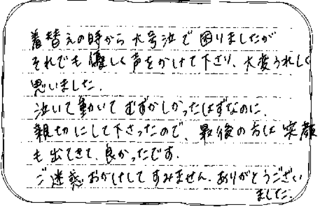 着替えの時から大号泣で困りましたが
それでも優しく声をかけて下さり、大変うれしく
思いました。
泣いて動いてむずかしかったはずなのに
親切にして下さったので、最後の方は笑顔
も出てきて、良かったです。
ご迷惑おかけしてすみません。ありがとうござい
ました。